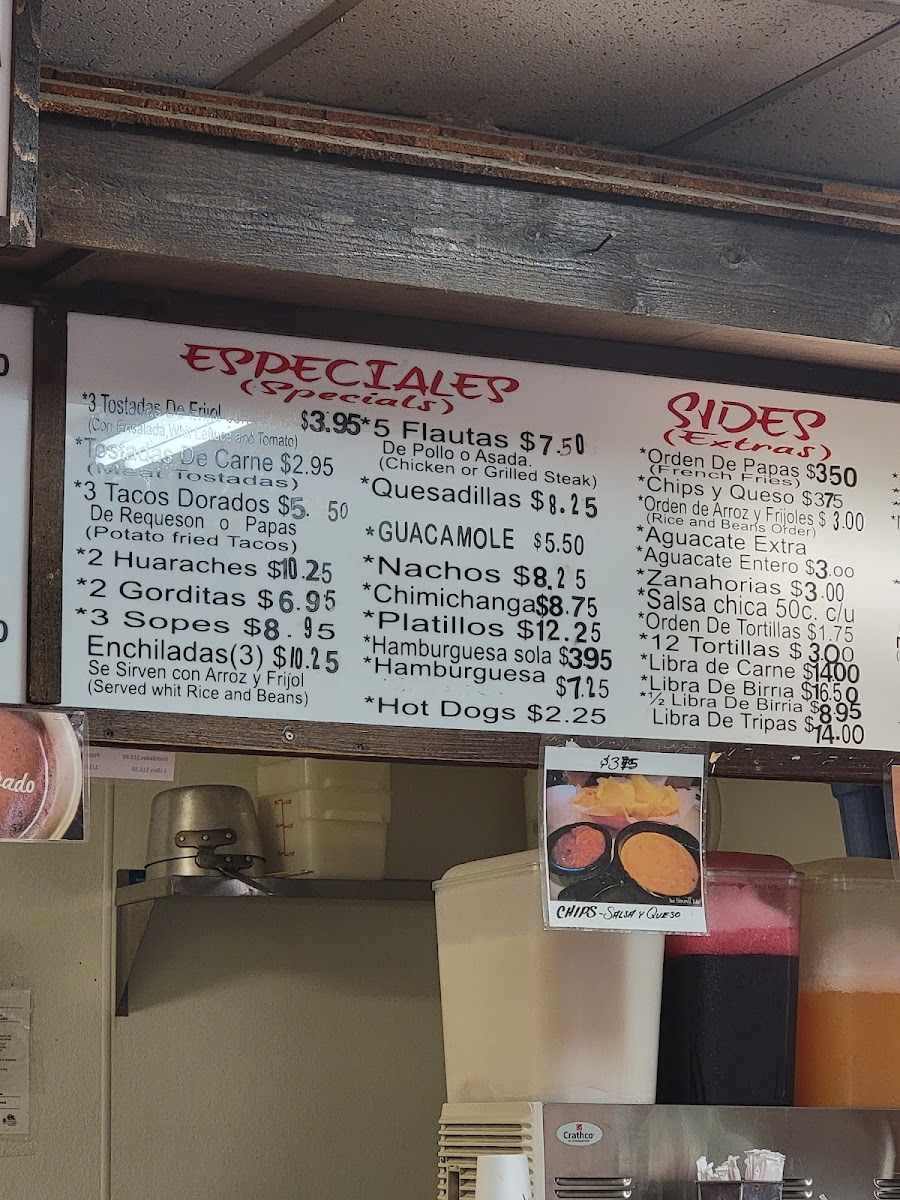 ESPECIALES
(Specials)
*3 Tostadas De Frijol $3.95
(Con Ensalada, Whit Lettuce and Tomato)
*Tostadas De Carne $2.95
(Meat Tostadas)
*3 Tacos Dorados $5. 50
De Requeson o Papas
(Potato fried Tacos)
*2 Huaraches $10.25
*2 Gorditas $6.95
*3 Sopes $8.95
Enchiladas(3) $10.25
Se Sirven con Arroz y Frijol
(Served whit Rice and Beans)
*5 Flautas $7.50
De Pollo o Asada.
(Chicken or Grilled Steak)
*Quesadillas $8.25
*GUACAMOLE $5.50
*Nachos $8.25
*Chimichanga$8.75
*Platillos $12.25
*Hamburguesa sola $395
*Hamburguesa
$7.25
*Hot Dogs $2.25
SIDES
(Extras)
*Orden De Papas $350
(French Fries)
*Chips y Queso $375
*Orden de Arroz y Frijoles $ 3.00
(Rice and Beans Order)
*Aguacate Extra
*Aguacate Entero $3.00
*Zanahorias $3.00
*Salsa chica 50c. c/u
*Orden De Tortillas $1.75
*12 Tortillas $ 3.00
*Libra de Carne $14.00
*Libra De Birria $16.50
*½ Libra De Birria $8.95
Libra De Tripas $14.00
ado
$375
CHIPS-SALSA Y QUESO
Crathco